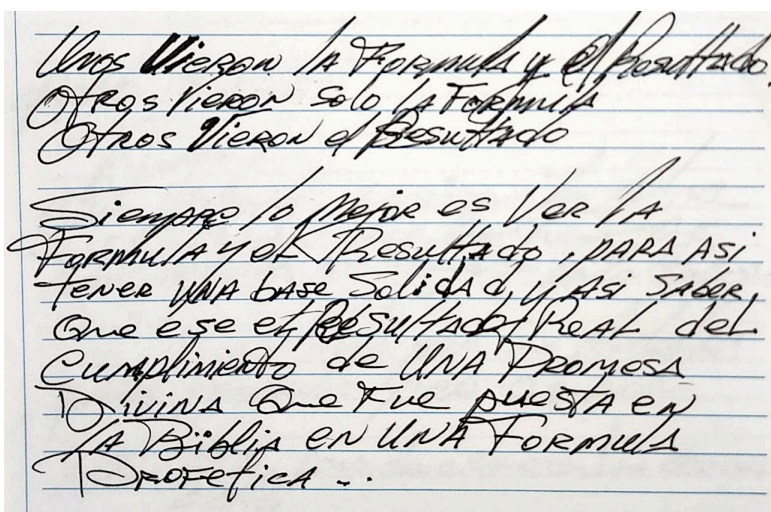 Unos Vieron la Formula y el Resultado.
Otros Vieron Solo la Formula
Otros Vieron el Resultado
Siempre lo Mejor es Ver la
Formula y el Resultado, para asi
tener una base Solidad, y asi Saber
Que ese es el Resultado Real del
Cumplimiento de una Promesa
Divina Que Fue puesta en
la Biblia en una Formula
Profetica...